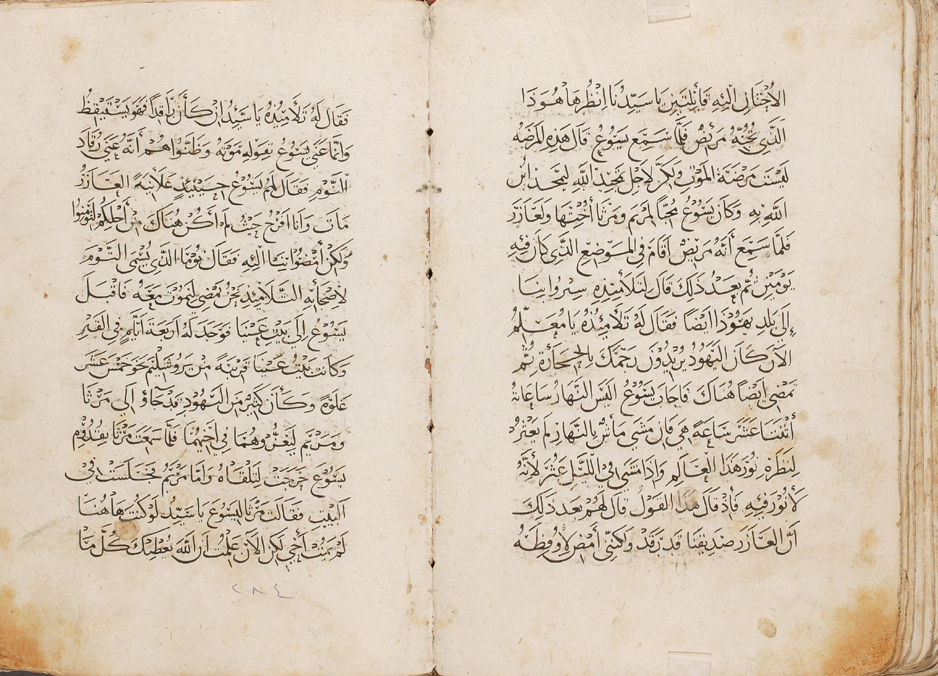 الاختان اليه قائلتين يا سيدنا انظر ها هوذا
الذي تحبه مريض فلما سمع يسوع قال هذه المرضه
ليست مرضة الموت ولكن لاجل مجد الله ليمجد ابن
الله به وكان يسوع محبا لمريم ومرثا اختها ولعازر
فلما سمع أنه مريض أقام في الموضع الذي كان فيه
يومين ثم بعد ذلك قال لتلاميذه سيروا بنا
إلى بلد يهوذا ايضا فقال له تلاميذه يا معلم
الآن كان اليهود يريدون رجمك بالحجارة ثم
تمضي ايضا هناك فاجاب يسوع اليس النهار ساعاته
أثنتا عشرة ساعة هي فان مشى ماش بالنهار لم يعثر
لنظره نور هذا العالم واذا مشى في الليل عثر لأنه
لا نور فيه فاذ قال هذا القول قال لهم بعد ذلك
ان العازر صديقنا قد رقد ولكني أمضي لاوقظه
فقال له تلاميذه يا سيد ان كان راقدا فهو يستيقظ
وانما عنى يسوع بقوله موته وظنوا هم أنه عنى رقاد
النوم فقال لهم يسوع حينيذ علانية العازر
مات وانا افرح حيث لم اكن هناك من أجلكم لتؤمنوا
ولكن أمضوا بنا اليه فقال توما الذي يسمى التوم
لاصحابه التلاميذ نحن نمضي لنموت معه فاقبل
يسوع إلى بيت عنيا فوجد له اربعة ايام في القبر
وكانت بيت عنيا قريبة من يروشليم نحو خمس عشرة
غلوة وكان كثير من اليهود قد جاؤ الى مرثا
ومريم ليعزوهما في اخيهما فلما سمعت مرثا بقدوم
يسوع خرجت لتلقاه وأما مريم فجلست في
البيت فقالت مرثا ليسوع يا سيد لو كنت هاهنا
لم يمت أخي لكن الآن علمت ان الله يعطيك كل ما
٢٨٤